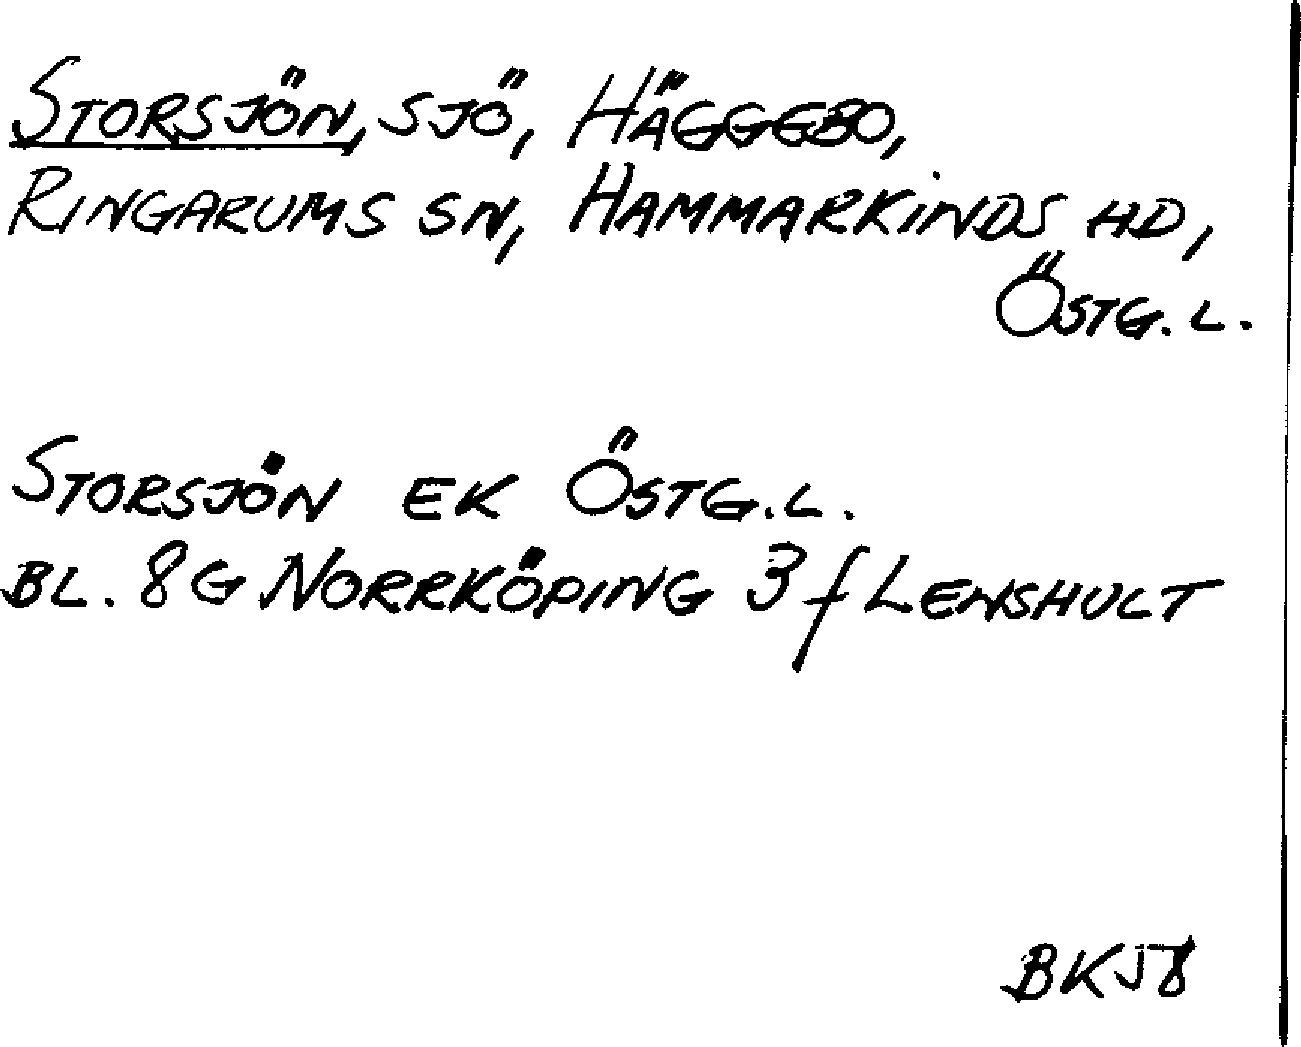 STORSJÖN, SJÖ, HÄGGEBO,
RINGARUMS SN, HAMMARKINDS HD,
ÖSTG. L.
STORSJÖN EK ÖSTG.L.
BL. 8G NORRKÖPING 3f LENSHULT